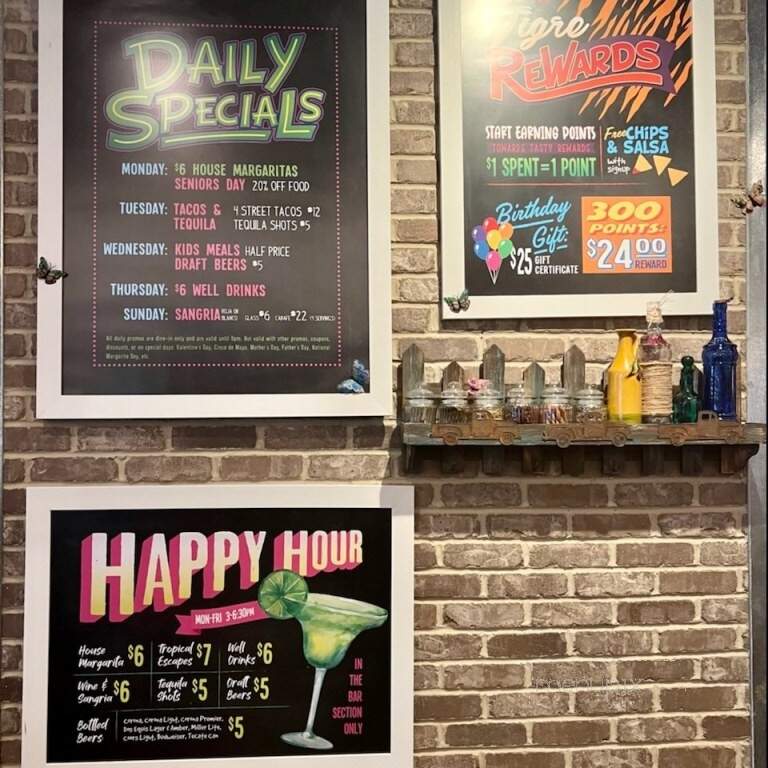 DAILY
SPECIALS
MONDAY: $6 HOUSE MARGARITAS
SENIORS DAY 20% OFF FOOD
TUESDAY: TACOS & 4 STREET TACOS $12
TEQUILA TEQUILA SHOTS $5
WEDNESDAY: KIDS MEALS HALF PRICE
DRAFT BEERS $5
THURSDAY: $6 WELL DRINKS
SUNDAY: SANGRIA ROJA OR BLANCO GLASS $6 CARAFE $22 (4 SERVINGS)
All daily promos are dine-in only and are valid until 9pm. Not valid with other promos, coupons,
discounts, or on special days: Valentine's Day, Cinco de Mayo, Mother's Day, Father's Day, National
Margarita Day, etc.
Tigre
REWARDS
START EARNING POINTS
TOWARDS TASTY REWARDS
$1 SPENT=1 POINT
Free CHIPS
& SALSA
with
signup
Birthday
Gift:
$25 GIFT
CERTIFICATE
300
POINTS:
$24.00
REWARD
HAPPY HOUR
MON-FRI 3-6:30PM
House Margarita $6
Tropical Escapes $7
Well Drinks $6
Wine & Sangria $6
Tequila Shots $5
Draft Beers $5
Bottled Beers
Corona, Corona Light, Corona Premier,
Dos Equis Lager & Amber, Miller Lite,
Coors Light, Budweiser, Tecate Can
$5
IN
THE
BAR
SECTION
ONLY